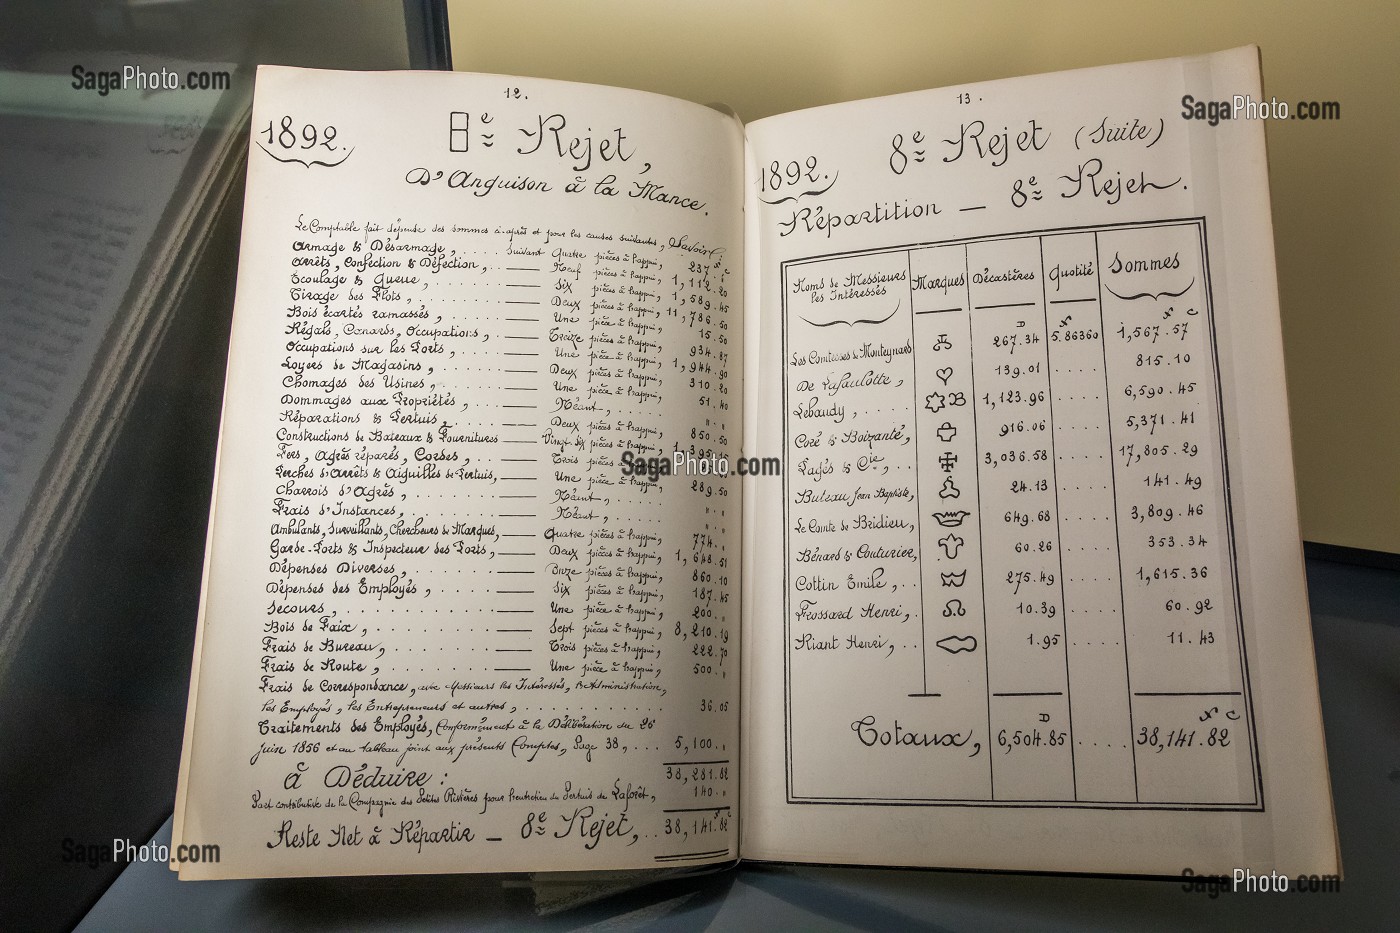 SagaPhoto.com
SagaPhoto.com
12.
1892.
8e Rejet,
D'Anguison à la Mance.
Le Comptable fait dépense des sommes ci-après et pour les causes suivantes, Savoir:
Armage & Désarmage, . . . suivant Quatre pièces à l'appui, 237. "
Arrêts, Confection & Défection, . . Neuf pièces à l'appui, 1,112.20
Ecoulage & Queue, . . . . Six pièces à l'appui, 1,589.45
Tirage des Flots, . . . . Deux pièces à l'appui, 11,786.50
Bois écartés ramassés, . . . . Une pièce à l'appui, 15.50
Régals, Canards, Occupations, . . Treize pièces à l'appui, 934.87
Occupations sur les Ports, . . . Une pièce à l'appui, 1,944.90
Loyers de Magasins, . . . . Deux pièces à l'appui, 310.20
Chomages des Usines, . . . . Une pièce à l'appui, 51.40
Dommages aux Propriétés, . . . Néant, . . . . . " "
Réparations & Pertuis, . . . Deux pièces à l'appui, 850.50
Constructions de Bateaux & Fournitures Vingt-six pièces à l'appui, 1,395.15
Fers, Agrès réparés, Cordes, . . . Trois pièces à l'appui,
Perches d'Arrêts & Aiguilles de Pertuis, Une pièce à l'appui, 289.50
Charrois d'Agrès, . . . . . Néant, . . . . . " "
Frais d'Instances, . . . . . Néant, . . . . . " "
Ambulants, Surveillants, Chercheurs de Marques, Quatre pièces à l'appui, 774. "
Garde-Ports & Inspecteur des Ports, . . Deux pièces à l'appui, 1,648.51
Dépenses Diverses, . . . . . Onze pièces à l'appui, 860.10
Dépenses des Employés, . . . . Six pièces à l'appui, 187.45
Secours, . . . . . . . Une pièce à l'appui, 200. "
Bois de Faix, . . . . . . Sept pièces à l'appui, 8,210.19
Frais de Bureau, . . . . . Trois pièces à l'appui, 222.70
Frais de Route, . . . . . Une pièce à l'appui, 500. "
Frais de Correspondance, avec Messieurs les Intéressés, l'Administration,
les Employés, les Entrepreneurs et autres, . . . . . . . . . 36.05
Traitements des Employés, Conformément à la Délibération du 26
Juin 1856 et au tableau joint aux présents Comptes, Page 38, . . . 5,100. "
38,281.82
à Déduire :
Part contributive de la Compagnie des Petites Rivières pour l'entretien du Pertuis de Laforêt, 140. "
Reste Net à Répartir — 8e Rejet, . . 38,141.82
13.
1892.
8e Rejet (Suite)
Répartition — 8e Rejet.
Noms de Messieurs les Intéressés Marques Décastères Quotité Sommes
D F F C
Les Comtesses de Monteynard 267.34 5.86360 1,567.57
De Lafaulotte, 139.01 . . . . 815.10
Lebaudy, . . . . B 1,123.96 . . . . 6,590.45
Coré & Boizanté, 916.06 . . . . 5,371.41
Lagés & Cie, . . 3,036.58 . . . . 17,805.29
Buteau Jean Baptiste, 24.13 . . . . 141.49
Le Comte de Bridieu, 649.68 . . . . 3,809.46
Bénard & Couturier, 60.26 . . . . 353.34
Cottin Emile, . . 275.49 . . . . 1,615.36
Frossard Henri, . 10.39 . . . . 60.92
Riant Henri, . . 1.95 . . . . 11.43
D F C
Totaux, 6,504.85 . . . . 38,141.82
SagaPhoto.com
SagaPhoto.com
SagaPhoto.com